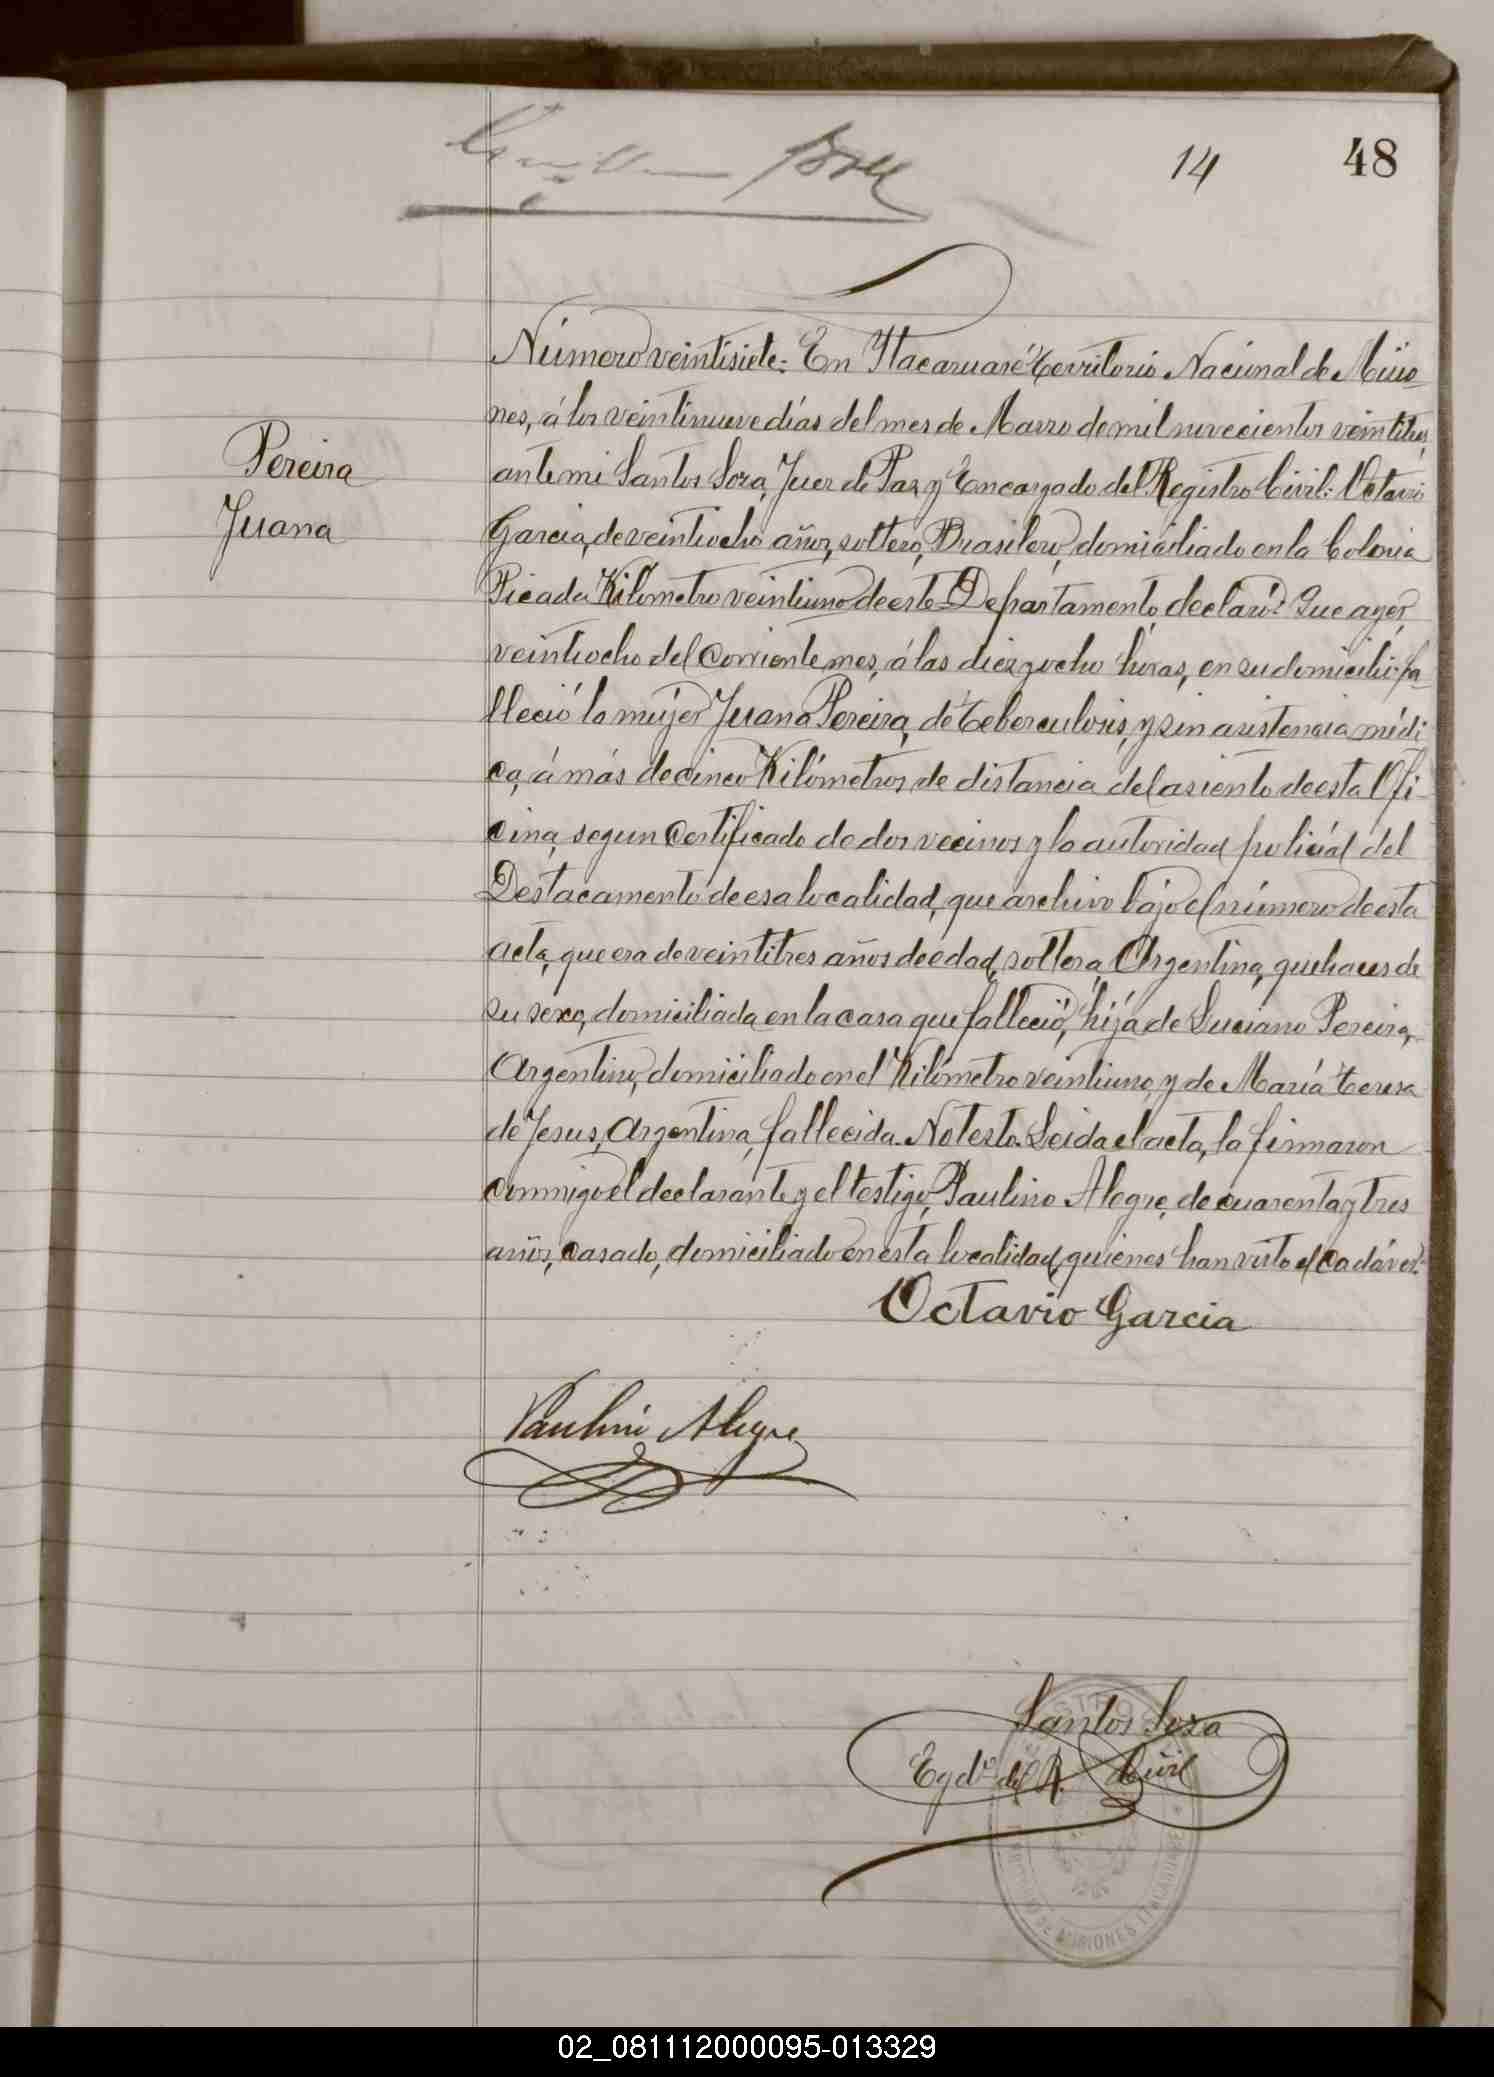 14
48
Pereira
Juana
Número veintisiete: En Itacaruaré Territorio Nacional de Misio-
nes, á los veintinueve días del mes de Marzo de mil novecientos veintitres,
ante mi Santos Soza, Juez de Paz y Encargado del Registro Civil: Octavio
Garcia, de veintiocho años, soltero, Brasilero, domiciliado en la Colonia
Picada Kilómetro veintiuno de este Departamento, declaró: Que ayer,
veintiocho del corriente mes, á las diez y ocho horas, en su domicilio fa-
lleció la mujer Juana Pereira, de Teberculosis, y sin asistencia médi-
ca, á más de cinco Kilómetros de distancia del asiento de esta Ofi-
cina, segun Certificado de dos vecinos y la autoridad policial del
Destacamento de esa localidad, que archivo bajo el número de esta
acta, que era de veintitres años de edad, soltera, Argentina, quehaceres de
su sexo, domiciliada en la casa que falleció, hija de Luciano Pereira,
Argentino, domiciliado en el Kilómetro veintiuno, y de María Teresa
de Jesus, Argentina, fallecida. No testó. Leida el acta, la firmaron
conmigo el declarante y el testigo, Paulino Alegre, de cuarenta y tres
años, casado, domiciliado en esta localidad, quienes han visto el cadáver.
Octavio Garcia
Paulino Alegre
Santos Soza
Egdo. del R. Civil
TERRITORIO DE MISIONES ITACARUARE
02_081112000095-013329